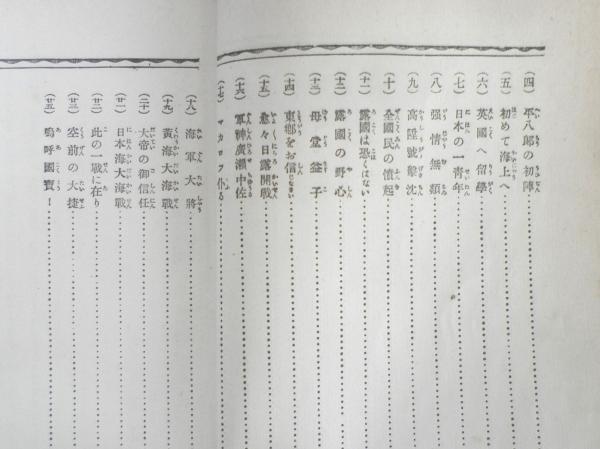 (四) 平八郎の初陣
(五) 初めて海上へ
(六) 英國へ留學
(七) 日本の一青年
(八) 强情無類
(九) 高陞號擊沈
(十) 全國民の憤起
(十一) 露國は恐くはない
(十二) 露國の野心
(十三) 母堂益子
(十四) 東鄕をお信じなさい
(十五) 愈々日露開戰
(十六) 軍神廣瀨中佐
(十七) マカロフ仆る
(十八) 海軍大將
(十九) 黃海大海戰
(二十) 大帝の御信任
(廿一) 日本海大海戰
(廿二) 此の一戰に在り
(廿三) 空前の大捷
(廿五) 嗚呼國寶!